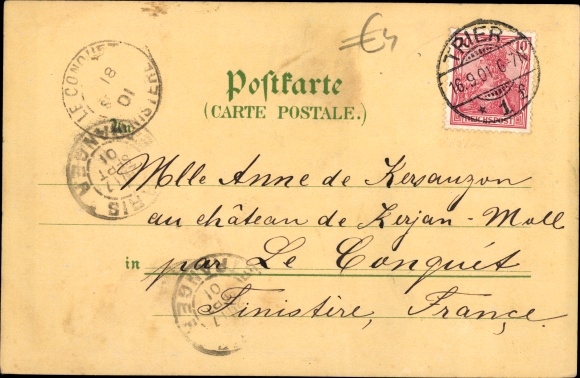 €4
TRIER
16.9.01. 6-7N
* 1 f
10
REICHSPOST
LE CONQUET
18
9
01
FINISTERE
Postkarte
(CARTE POSTALE.)
An
PARIS
SEPT
01
ETRANGER
Mlle Anne de Kersauzon
au château de Kerjan-Moll
in par Le Conquét
Finistère, France.